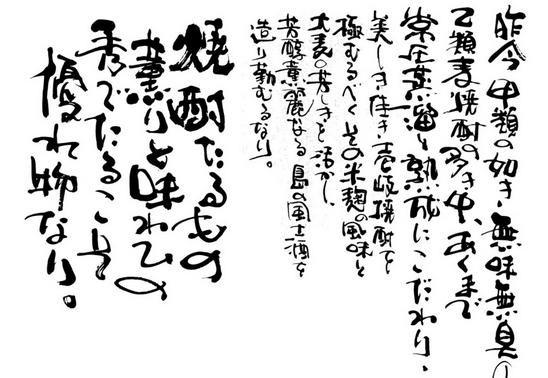 昨今甲類の如き無味無臭の
乙類麦焼酎の多き中、あくまで
常圧蒸溜と熟成にこだわり、
美しき佳き壱岐焼酎を
極むるべくその米麹の風味と
大麦の芳しさを活かし、
芳醇薫麗なる島の風土酒を
造り勤むるなり。
焼酎たるもの
薫りと味わひの
秀でたること
優れ物なり。